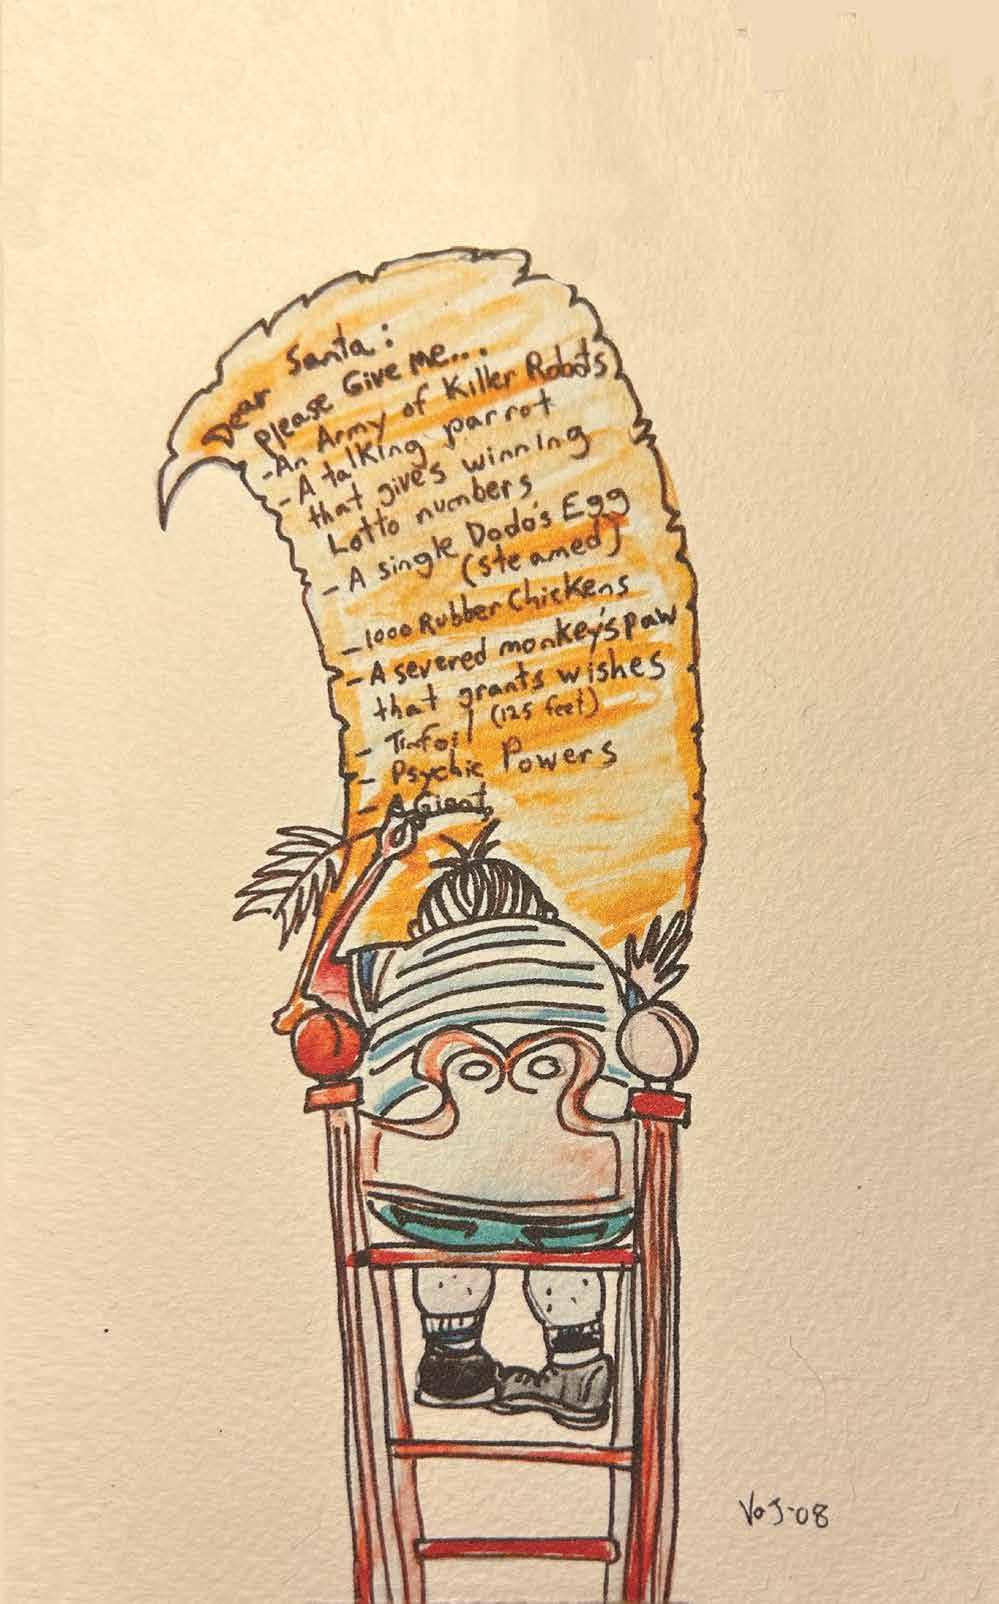 Dear Santa:
please Give me...
-An Army of Killer Robots
-A talking parrot
that gives winning
Lotto numbers
-A single Dodo's Egg
(steamed)
-1000 Rubber Chickens
-A severed monkey's paw
that grants wishes
- Tinfoil (125 feet)
- Psychic Powers
- A Giant
VoJ-08